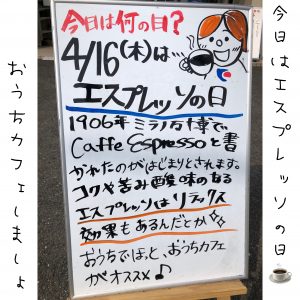 今日はエスプレッソの日☕
おうちカフェしましょ
今日は何の日？
4/16(木)は…
エスプレッソの日
1906年ミラノ万博で
Caffe Espressoと書
かれたのがはじまりとされます。
コクや苦み酸味のなる
エスプレッソはリラックス
効果もあるんだとか
おうちでほっと、おうちカフェ
がオススメ♪